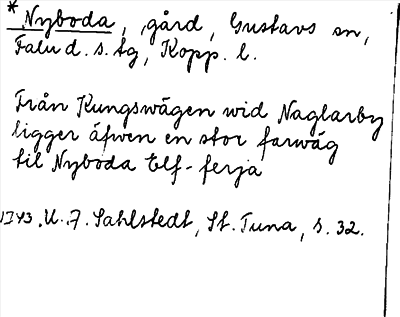 * Nyboda, gård, Gustavs sn,
Falu d. s. tg, Kopp. l.
Från Kungswägen wid Naglarby
ligger äfwen en stor farwäg
til Nyboda Elf-ferja
1743. U. F. Sahlstedt, St. Tuna, s. 32.